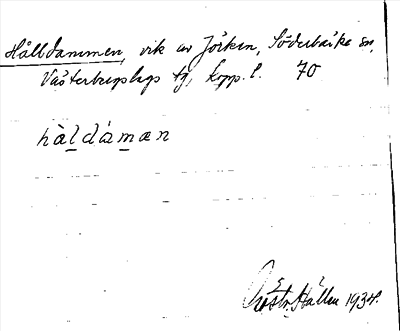 Hålldammen, vik av Jörken, Söderbärke sn,
Västerbergslags tg, Kopp. l. 70
hàldámæn
Göstr. Hallen 1934.